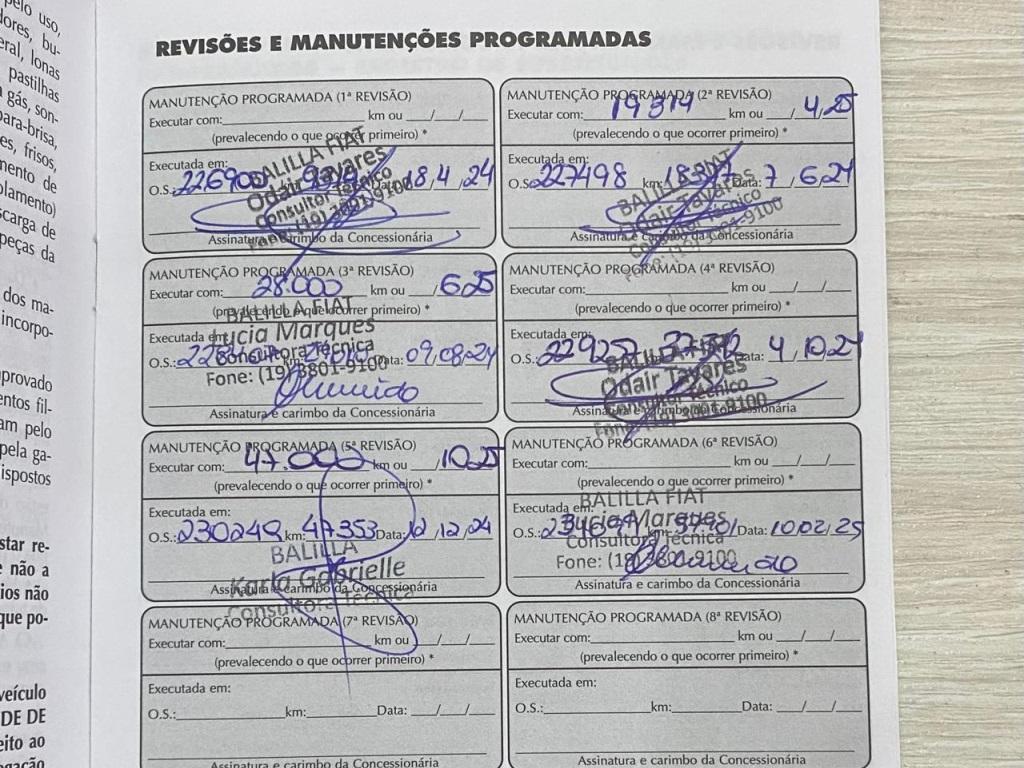 pelo uso,
dores, bu-
eral, lonas
pastilhas
gás, son-
para-brisa,
es, frisos,
mento de
olamento)
scarga de
peças da
dos ma-
incorpo-
provado
entos fil-
am pelo
pela ga-
ispostos
star re-
e não a
ios não
que po-
veículo
DE DE
eito ao
REVISÕES E MANUTENÇÕES PROGRAMADAS
MANUTENÇÃO PROGRAMADA (1ª REVISÃO)
Executar com: km ou / /
(prevalecendo o que ocorrer primeiro) *
Executada em:
O.S.: 226900 km: Data: 18,4,24
BALILLA FIAT
Odair Tavares
Consultor Técnico
Fone: (19) 3801-9100
Assinatura e carimbo da Concessionária
MANUTENÇÃO PROGRAMADA (2ª REVISÃO)
Executar com: 19319 km ou / 4,25
(prevalecendo o que ocorrer primeiro) *
Executada em:
O.S.: 227498 km: Data: 7 / 6,24
BALILLA FIAT
Odair Tavares
Consultor Técnico
Fone: (19) 3801-9100
Assinatura e carimbo da Concessionária
MANUTENÇÃO PROGRAMADA (3ª REVISÃO)
Executar com: 28.000 km ou / 6,25
(prevalecendo o que ocorrer primeiro) *
Executada em:
O.S.: km: Data: 09,08,24
BALILLA FIAT
Lucia Marques
Consultora Técnica
Fone: (19) 3801-9100
Assinatura e carimbo da Concessionária
MANUTENÇÃO PROGRAMADA (4ª REVISÃO)
Executar com: km ou / /
(prevalecendo o que ocorrer primeiro) *
Executada em:
O.S.: 22925 km: Data: 4,10,24
BALILLA FIAT
Odair Tavares
Consultor Técnico
Fone: (19) 3801-9100
Assinatura e carimbo da Concessionária
MANUTENÇÃO PROGRAMADA (5ª REVISÃO)
Executar com: 47.000 km ou / 10,25
(prevalecendo o que ocorrer primeiro) *
Executada em:
O.S.: 230248 km: 47353 Data: 12,12,24
BALILLA
Karla Gabrielle
Consultora Técnica
Assinatura e carimbo da Concessionária
MANUTENÇÃO PROGRAMADA (6ª REVISÃO)
Executar com: km ou / /
(prevalecendo o que ocorrer primeiro) *
Executada em:
O.S.: km: Data: 10,02,25
BALILLA FIAT
Lucia Marques
Consultora Técnica
Fone: (19) 3801-9100
Assinatura e carimbo da Concessionária
MANUTENÇÃO PROGRAMADA (7ª REVISÃO)
Executar com: km ou / /
(prevalecendo o que ocorrer primeiro) *
Executada em:
O.S.: km: Data: / /
Assinatura e carimbo da Concessionária
MANUTENÇÃO PROGRAMADA (8ª REVISÃO)
Executar com: km ou / /
(prevalecendo o que ocorrer primeiro) *
Executada em:
O.S.: km: Data: / /
Assinatura e carimbo da Concessionária